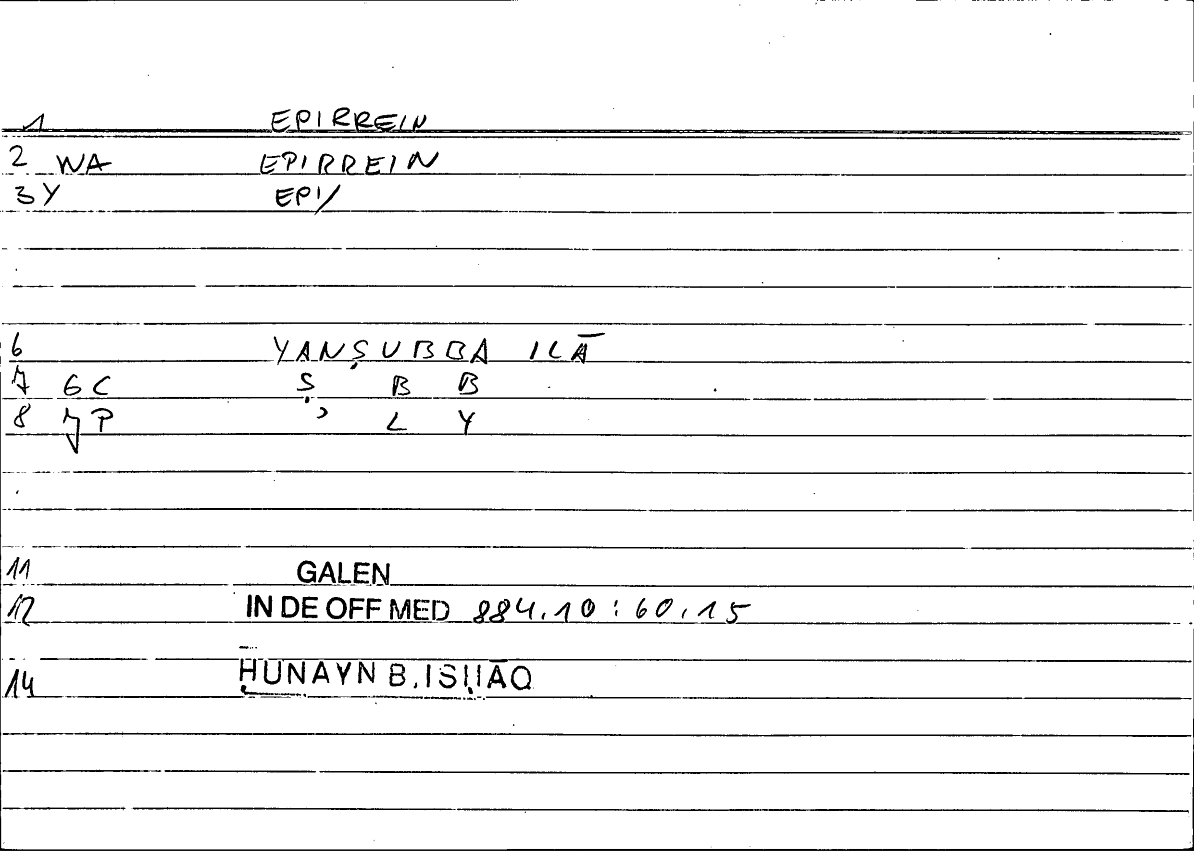 1 EPIRREIN
2 WA EPIRREIN
3 Y EPI/
6 YANṢUBBA ILĀ
7 GC Ṣ B B
8 JP Ṣ , L Y
11 GALEN
12 IN DE OFF MED 884.10 : 60.15
14 ḤUNAYN B. ISḤĀQ